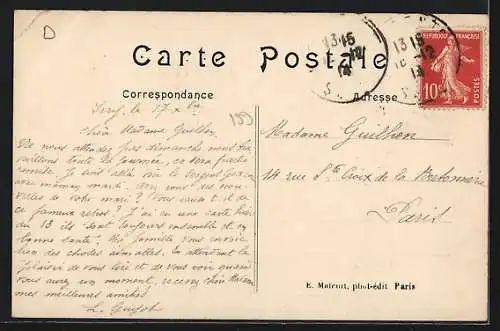 D
Carte Postale
RÉPUBLIQUE FRANÇAISE
10
POSTES
13 15
Correspondance
Adresse
le 17
199
chère Madame Guilhen
Ne nous attendez pas dimanche nous tra
vaillons toute la journée, ce sera partie
remise. Je suis allée voir le sergent
avez vous eu des nou
velles de votre mari ?
ce fameux retour ? J'ai eu une carte hier
du 13 ils sont toujours ensemble et en
bonne santé. Ma famille vous envoie
bien des choses aimables. En attendant le
plaisir de vous lire et de vous voir quand
vous aurez un moment, recevez chère Madame
mes meilleures amitiés
L. Guyot
Madame Guilhen
14 rue Ste Croix de la Bretonnerie
Paris
E. Malcuit, phot-édit Paris